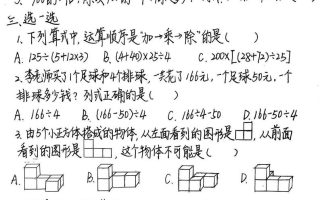 三、选一选
1.下列算式中,运算顺序是"加→乘→除"的是( )
A. 125÷(5+12×3) B. (4+40)×25÷4 C. 200×[(28+72)÷25]
2.李老师买了1个足球和4个排球,一共花了166元,一个足球50元,一个
排球多少钱?列式正确的是( )
A. 166÷4 B. (166-50)÷4 C. 166÷4-50 D. 166-50÷4
3.由5个小正方体搭成的物体,从左面看到的图形是 ,从前面
看到的图形是 ,这个物体不可能是( )
A. B. C. D.